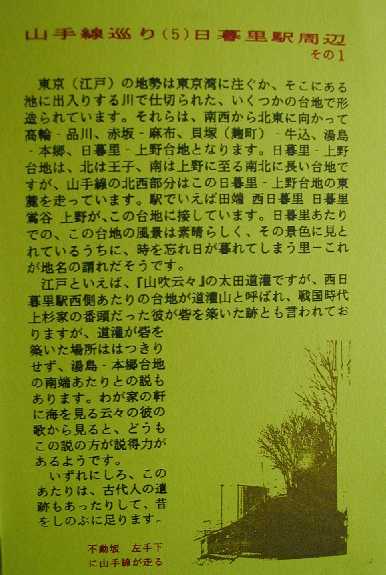 山手線巡り(5)日暮里駅周辺
その1
東京(江戸)の地勢は東京湾に注ぐか、そこにある
池に出入りする川で仕切られた、いくつかの台地で形
造られています。それらは、南西から北東に向かって
高輪‐品川、赤坂‐麻布、貝塚(麹町)‐牛込、湯島
‐本郷、日暮里‐上野台地となります。日暮里‐上野
台地は、北は王子、南は上野に至る南北に長い台地で
すが、山手線の北西部分はこの日暮里‐上野台地の東
麓を走っています。駅でいえば田端 西日暮里 日暮里
鶯谷 上野が、この台地に接しています。日暮里あたり
での、この台地の風景は素晴らしく、その景色に見と
れているうちに、時を忘れ日が暮れてしまう里ーこれ
が地名の謂れだそうです。
江戸といえば、『山吹云々』の太田道灌ですが、西日
暮里駅西側あたりの台地が道灌山と呼ばれ、戦国時代
上杉家の番頭だった彼が砦を築いた跡とも言われてお
りますが、道灌が砦を
築いた場所ははっきり
せず、湯島‐本郷台地
の南端あたりとの説も
あります。わが家の軒
に海を見る云々の彼の
歌から見ると、どうも
この説の方が説得力が
あるようです。
いずれにしろ、この
あたりは、古代人の遺
跡もあったりして、昔
をしのぶに足ります。
不動坂 左手下
に山手線が走る